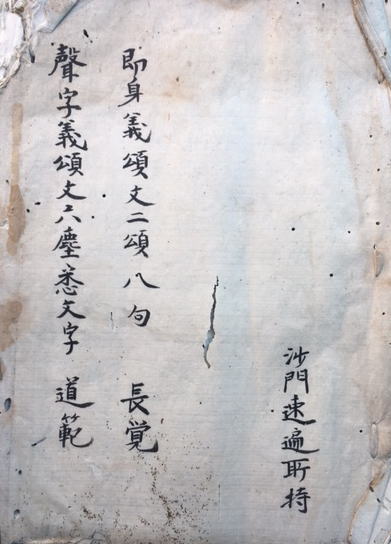 沙門速遍所持
即身義頌文二頌八句 長覚
聲字義頌文六塵悉文字 道範